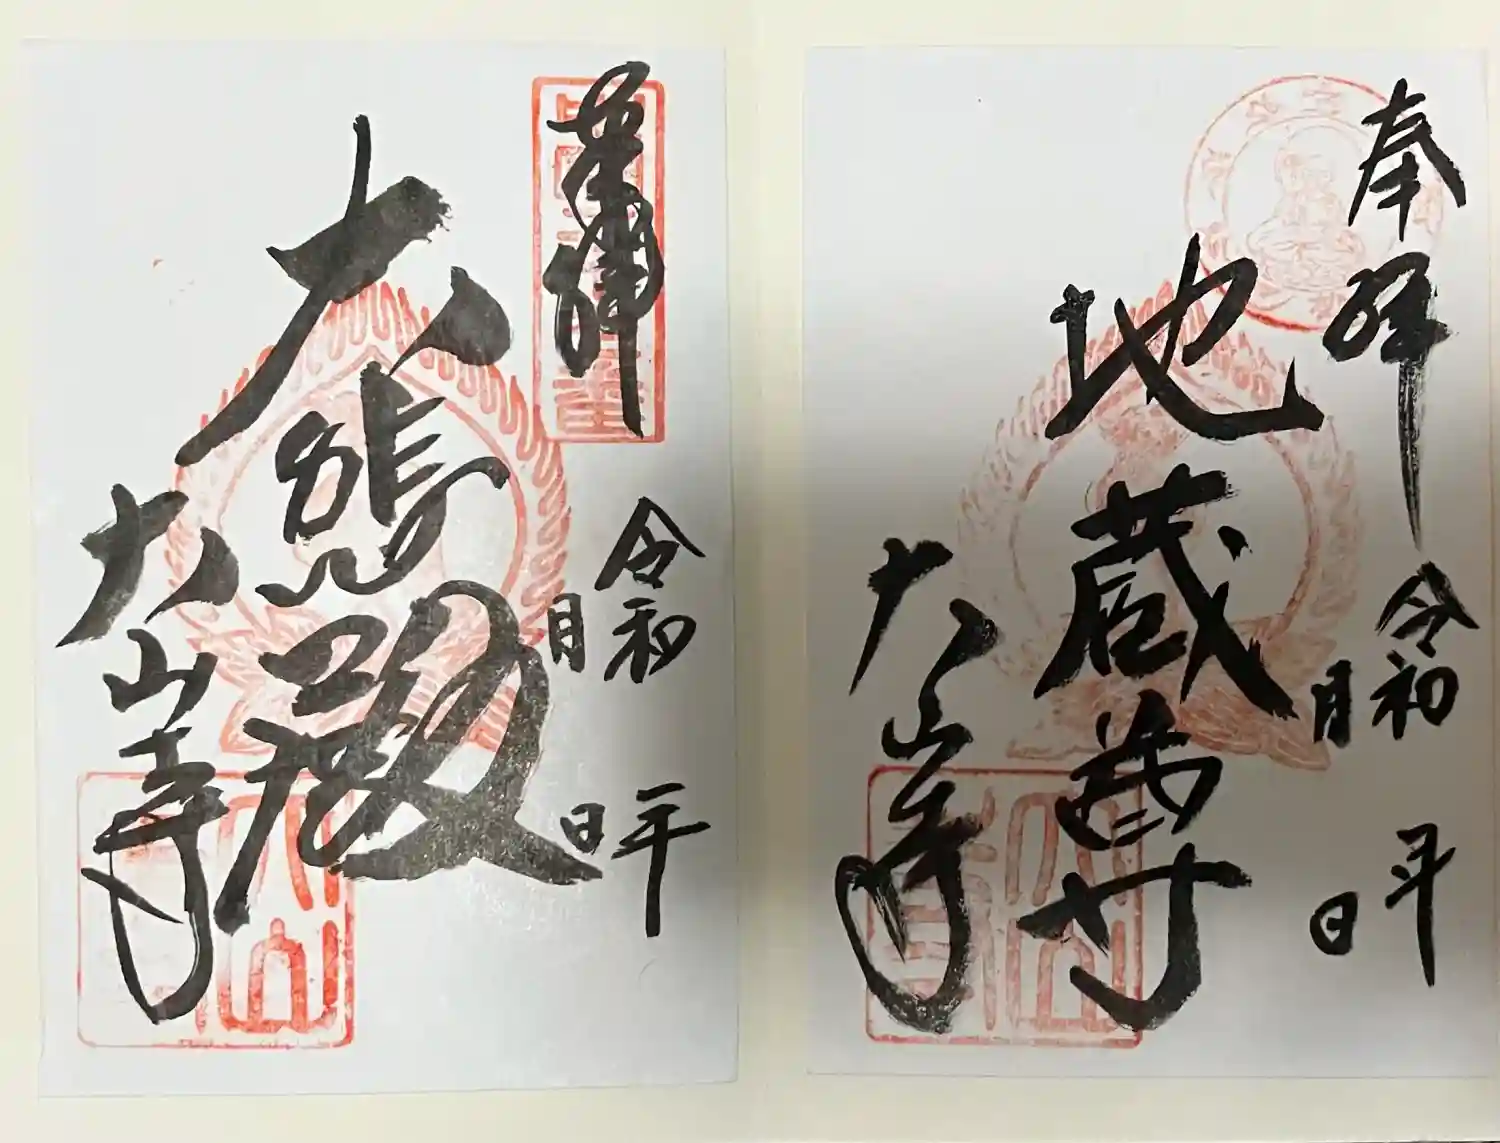 奉拝
令和　年
月　日
地蔵尊
大山寺
奉拝
令和　年
月　日
大悲殿
大山寺